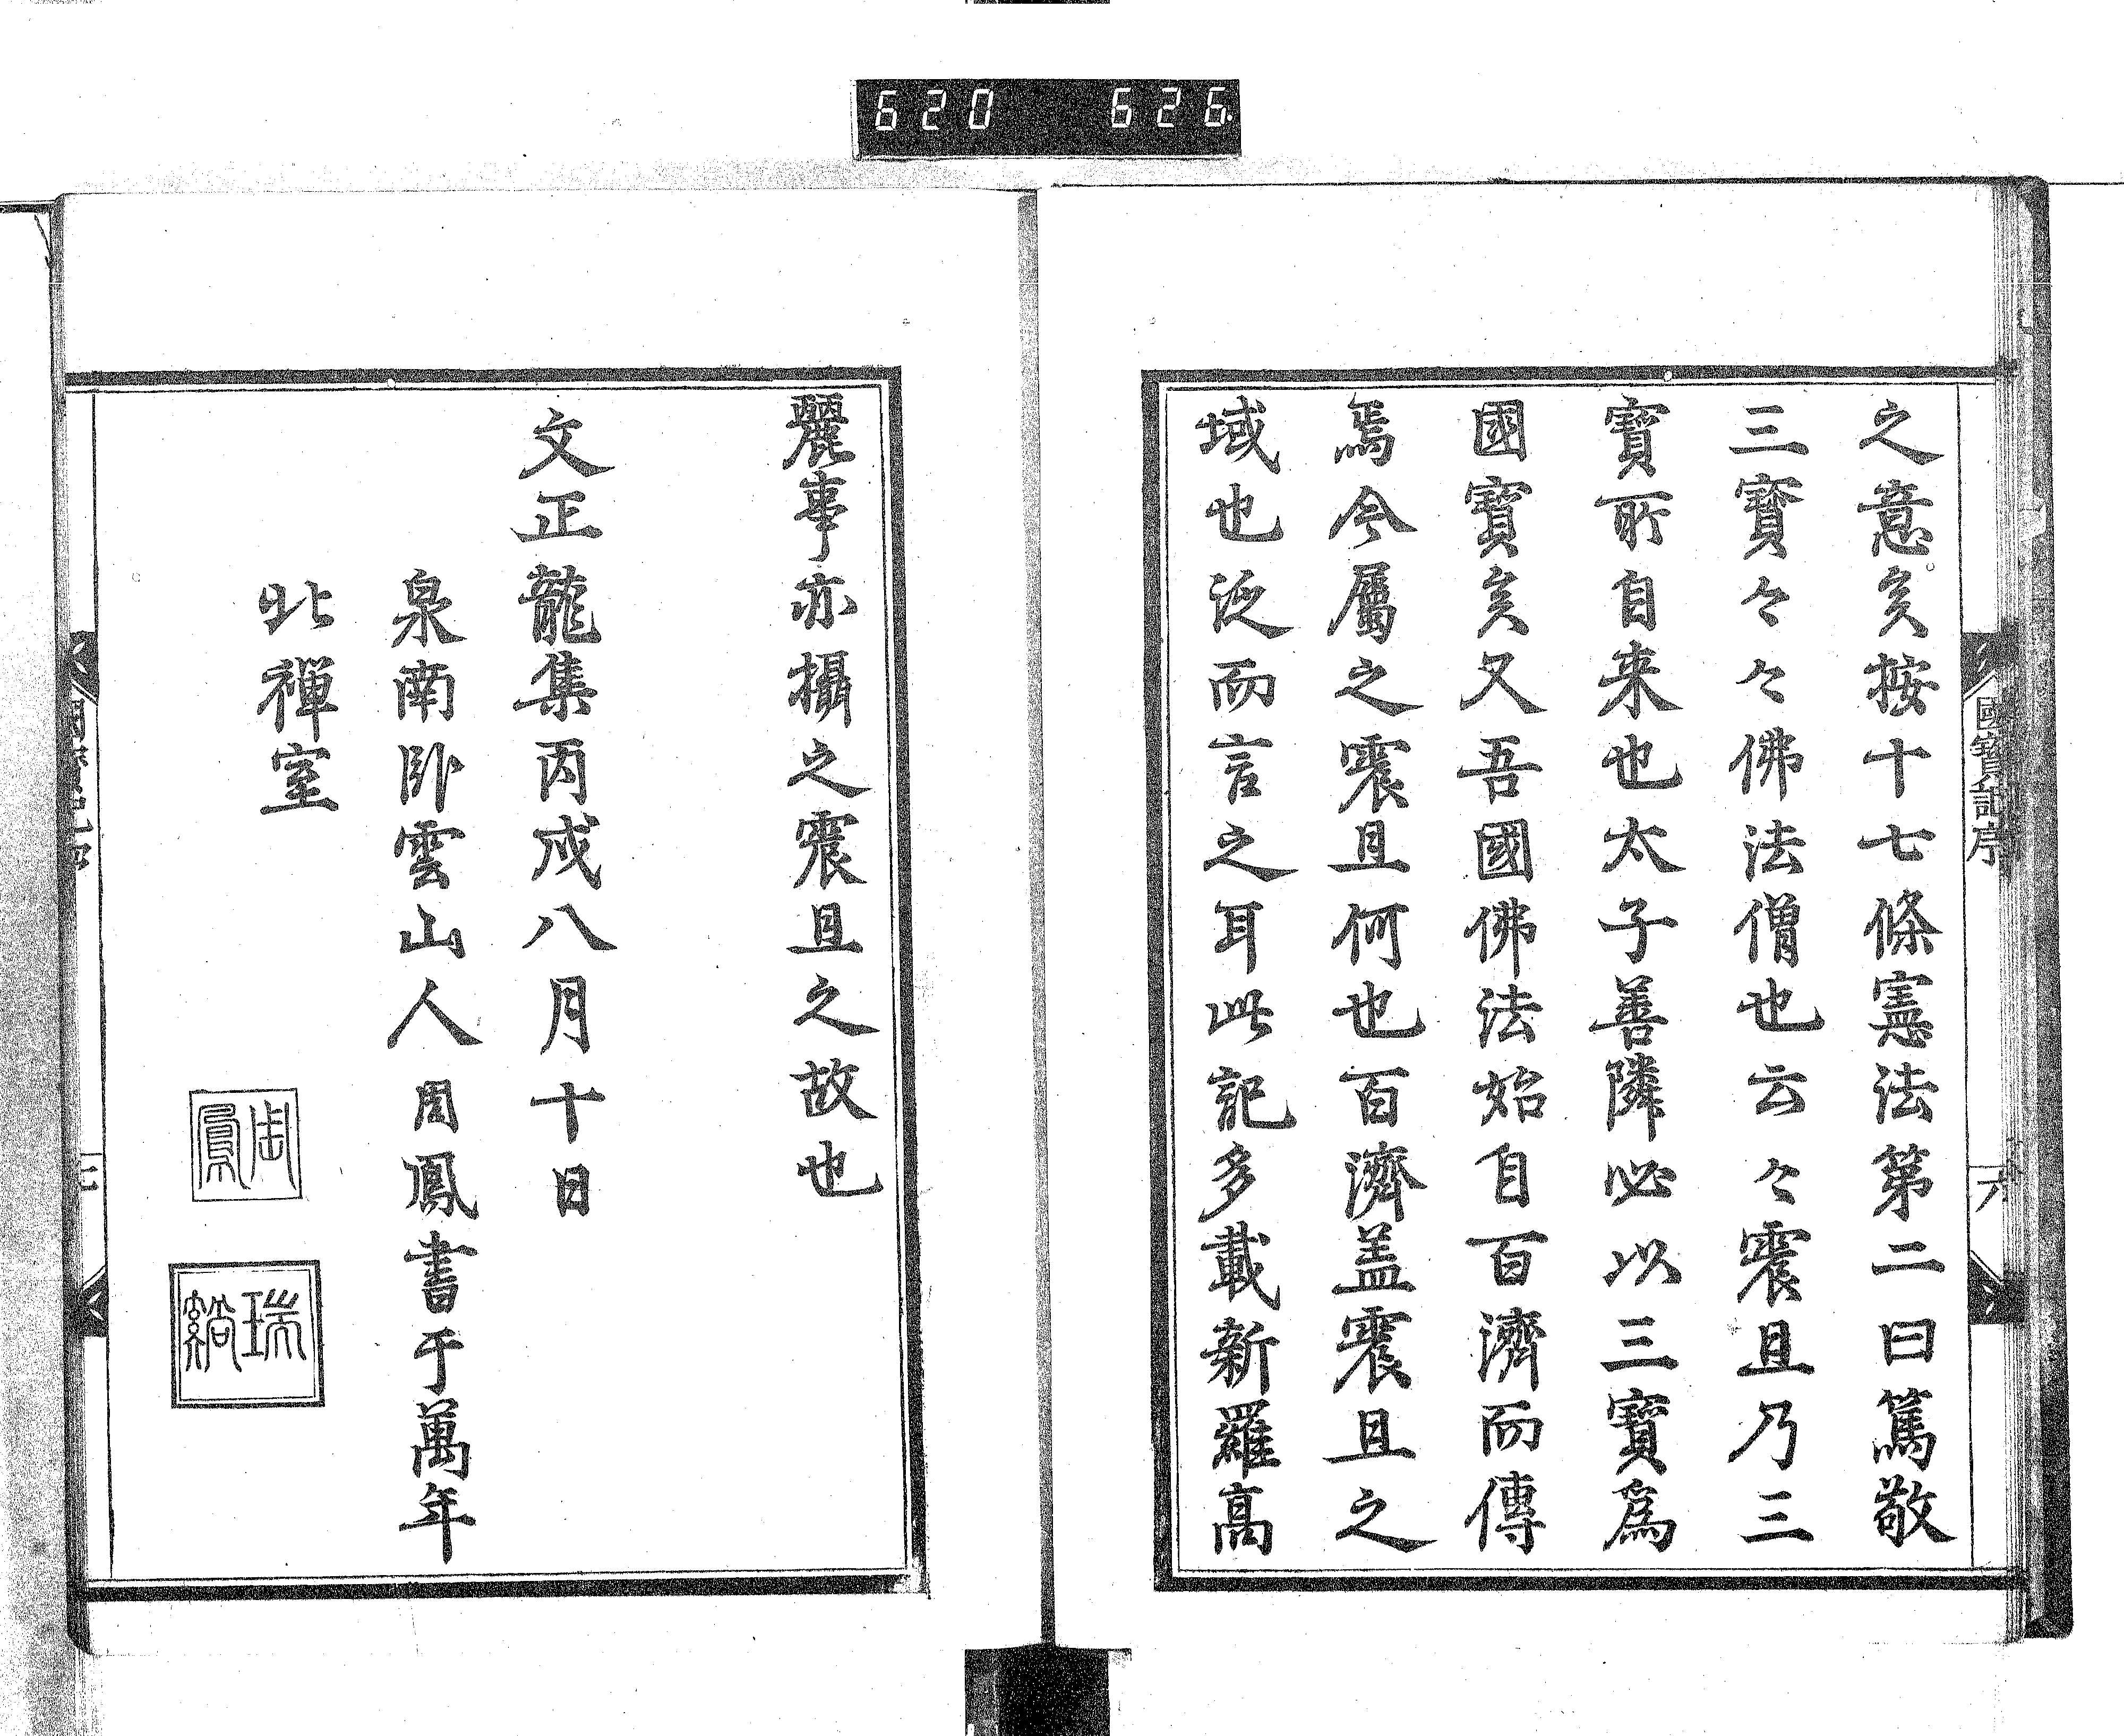 620 626
之意矣按十七條憲法第二曰篤敬
三寶々々佛法僧也云々震旦乃三
寶所自来也太子善隣必以三寶爲
國寶矣又吾國佛法始自百濟而傳
焉今屬之震旦何也百濟盖震旦之
域也泛而言之耳此記多載新羅高
國寶記序
六
麗事亦攝之震旦之故也
文正龍集丙戌八月十日
泉南卧雲山人周鳳書于萬年
北禪室
周鳳
瑞谿